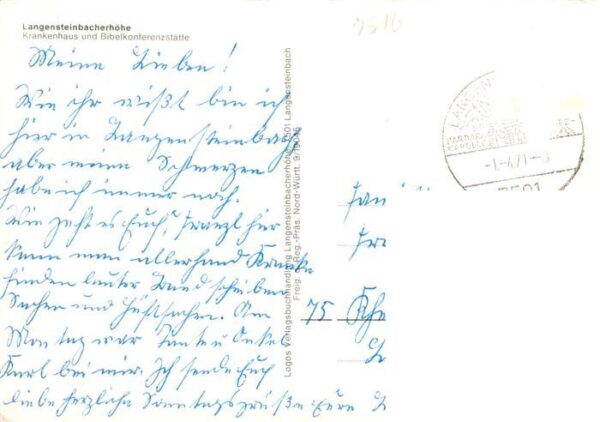 Langensteinbacherhöhe
Krankenhaus und Bibelkonferenzstätte
7516
Meine Lieben!
Wie ihr wißt bin ich
hier in Langensteinbach
aber meine Schmerzen
habe ich immer noch.
Wie geht es Euch, Franzl hier
kann man allerhand Kranke
finden lauter Bandscheiben
Sachen und Hüftsachen. Am
Montag war Tante u Onkel
Karl bei mir. Ich sende Euch
liebe herzliche Sonntagsgrüße Eure
Logos Verlagsbuchhandlung Langensteinbacherhöhe, 7501 Langensteinbach
Freig. d. Reg.-Präs. Nord-Württ.
LANGEN
7501
Fam
75 Kh